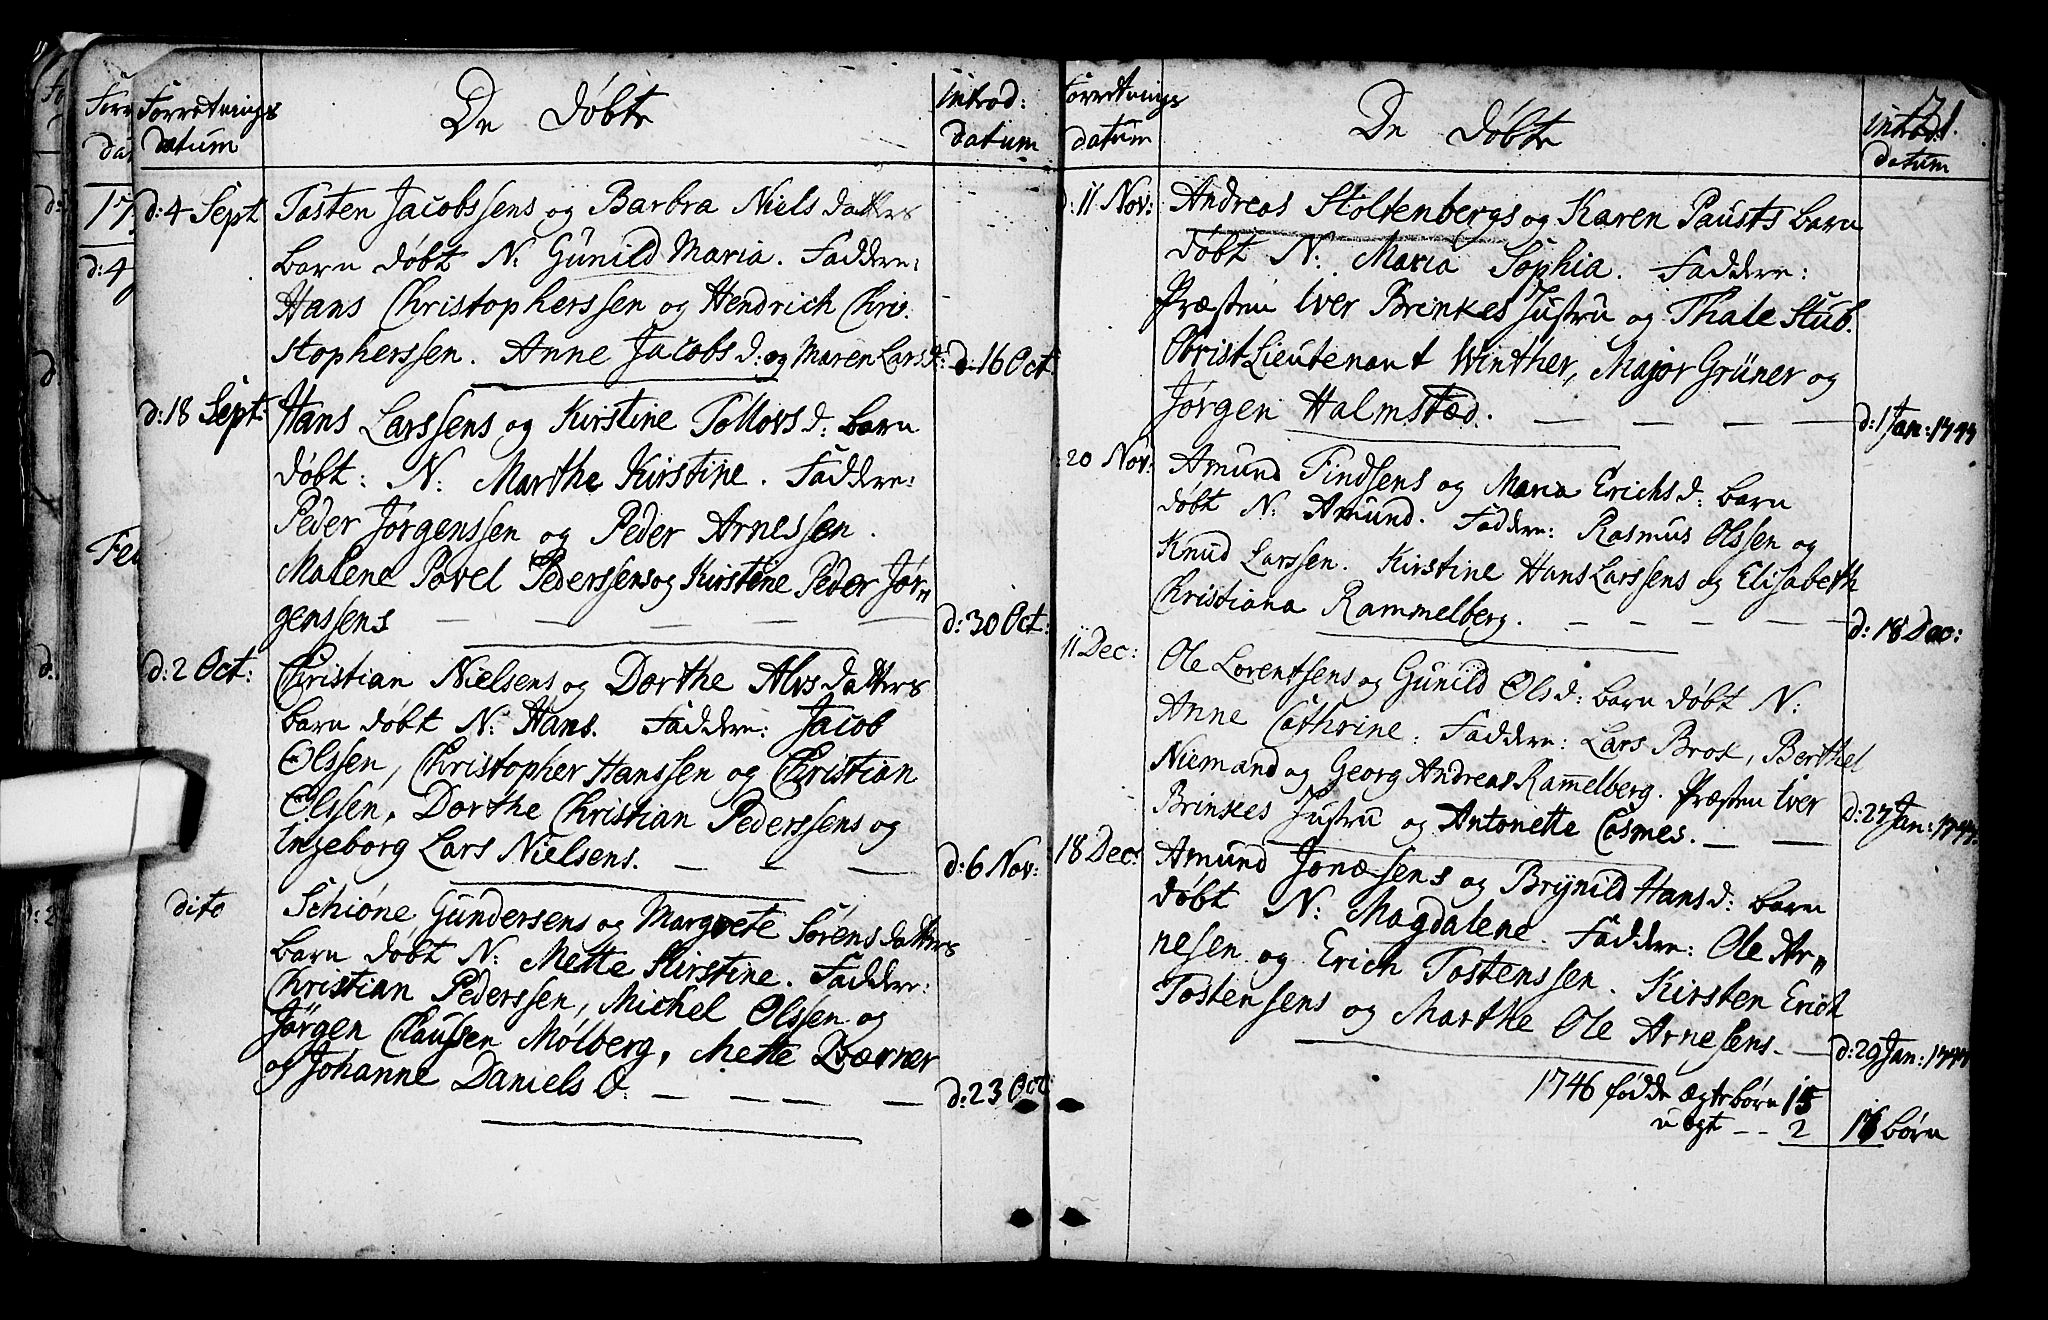 Forretnings
datum
De døbte
introd:
datum
d: 4 Sept
Tosten Jacobssens og Barbra Niels datters
barn døbt N: Gunild Maria. Faddere:
Hans Christopherssen og Hendrich Chri-
stopherssen. Anne Jacobs d: og Maren Lars d:
d: 16 Oct:
d: 18 Sept:
Hans Larssens og Kirstine Tollovs d: barn
døbt: N: Marthe Kirstine. Faddere:
Peder Jørgenssen og Peder Arnessen.
Malene Povel Pederssens og Kirstine Peder Jør„
genssens
d: 30 Oct:
d: 2 Oct:
Christian Nielsens og Dorthe Alvs datters
barn døbt N: Hans. Faddere: Jacob
Olssen, Christopher Hanssen og Christian
Olssen, Dorthe Christian Pederssens og
Ingeborg Lars Nielsens.
d: 6 Nov:
dito
Schiøne Gundersens og Margrete Sørens datters
barn døbt N: Mette Kirstine. Faddere:
Christian Pederssen, Michel Olssen og
Jørgen Claussen Mølberg, Mette Værner
og Johanne Daniels d:
d: 23 Oct
Forretnings
datum
De døbte
introd:
datum
d: 11 Nov:
Andreas Stoltenbergs og Karen Pausts barn
døbt N: Maria Sophia. Faddere:
Præsten Iver Brinkes Hustru og Thale Stub.
Obrist Lieutenant Winther, Major Grüner og
Jørgen Halmstæd.
d: 1 Jan: 1747
20 Nov:
Amund Findsens og Maria Erichs d: barn
døbt N: Amund. Faddere: Rasmus Olssen og
Knud Larssen. Kirstine Hans Larssens og Elisabeth
Christiana Rammelberg.
d: 18 Dec:
11 Dec:
Ole Lorentsens og Gunild Ols d: barn døbt N:
Anne Cathrine: Faddere: Lars Brok, Berthel
Niemand og Georg Andreas Ram̅elberg. Præsten Iver
Brinkes Hustru og Antonette Cosmes.
d: 27 Jan: 1747.
18 Dec:
Amund Jonæsens og Brynild Hans d: barn
døbt N: Magdalene. Faddere: Ole Ar„
nesen og Erich Tostenssen. Kirsten Erich
Tostensens og Marthe Ole Arnesens.
d: 29 Jan: 1747
1746 fødde ægte børn 15
u ægt - - 2
børn